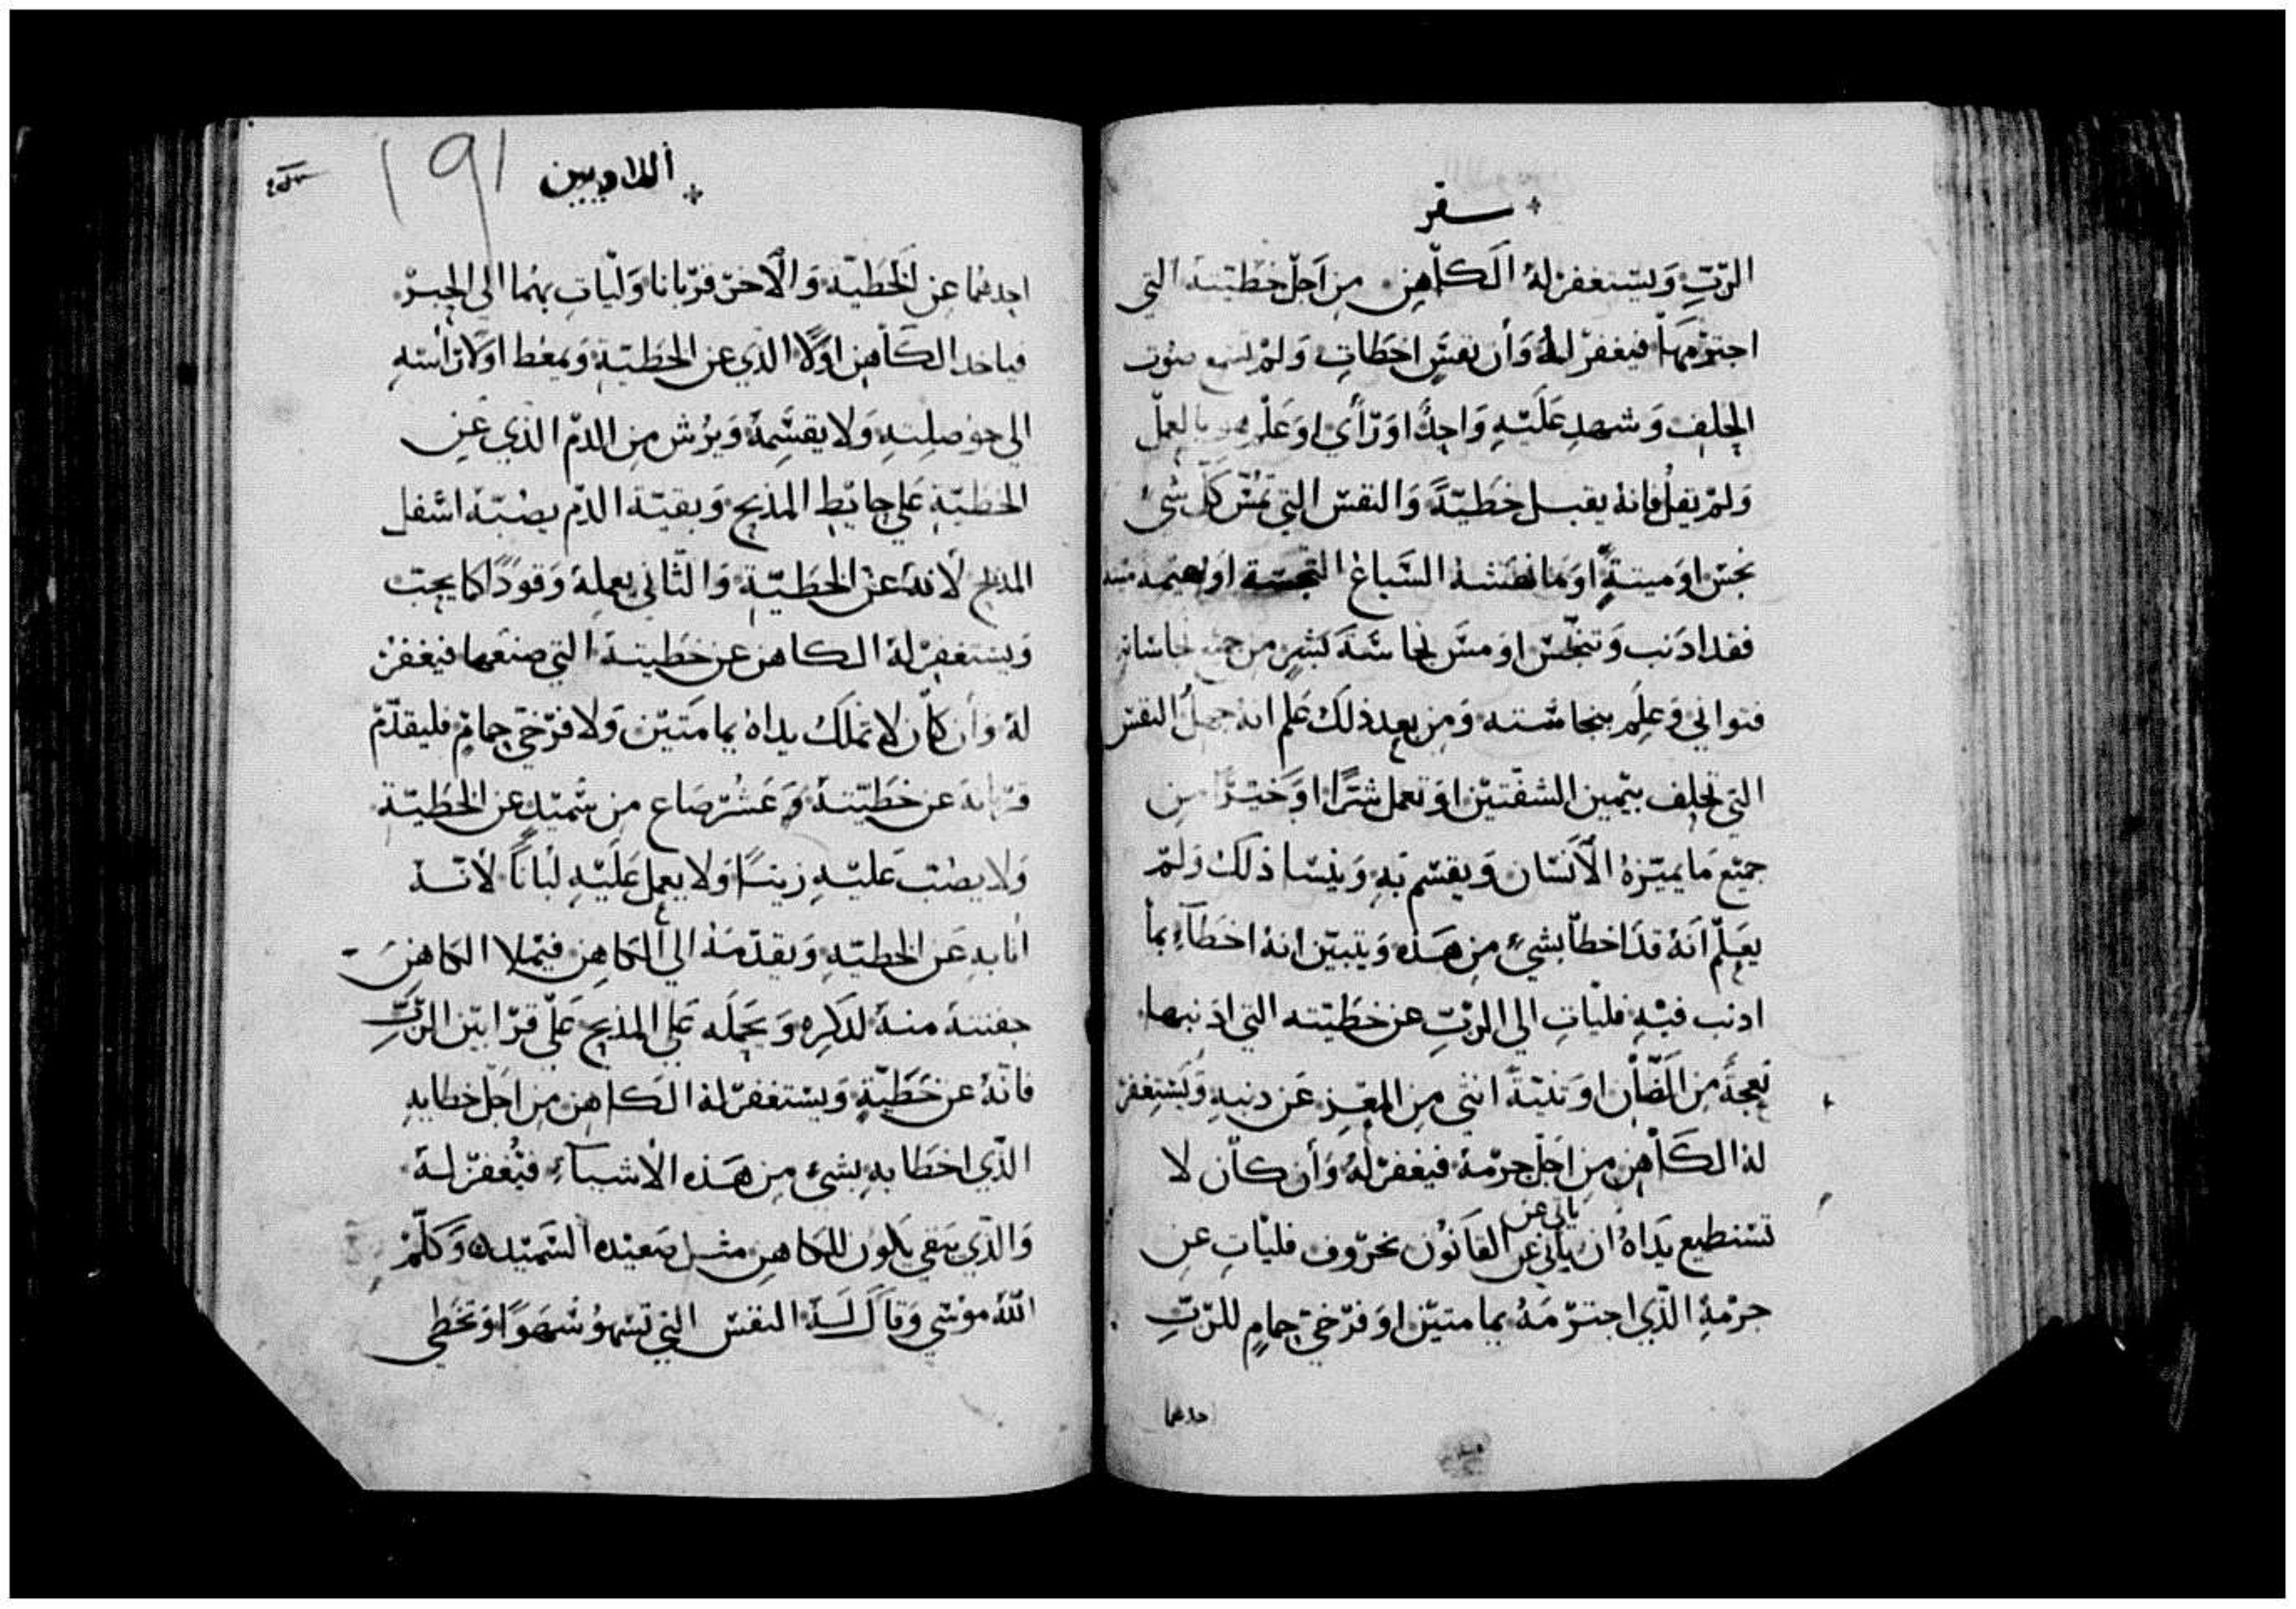 سفر
الرّبِّ وَيستغفرْ لهُ الكاهن من اَجل خَطيّتهُ التي
اجترمهَا فيغفرْ لهُ وَأن نفسٍ اخطَات وَلمْ تسمع صوت
الحلف وَشهد عَلَيْهِ وَاحدًا اوْ رَأي اوْ عَلم هو بالعمل
وَلمْ يقلْ فانهُ يقبل خطيّةً وَالنفس التي تمسّ كلّ شيء
نجس اوْ ميتةٍ اوْ مَا السّباعُ النجسة اوْ بهيمة ميته
فقد اذنب وَتنجّس اوْ مسّ نجاسَة بشرٍ من
فتواني وَعلم بنجاسته وَمن بعد ذلك عَلم انهُ النفس
التي تحلف بيمين الشفتين اوْ تعمل شرًّا اوْ خيرًا من
جميع مَا يميّزهُ الأنسان وَيقسم بهِ وَينسا ذلك وَلمْ
يعلم انّهُ قد اخطأ بشيءٍ من هَذه وَيتبيّن انهُ اخطأ بما
اذنب فيْهِ فليات الى الرّبِّ عن خطيّته التي اذنبها
نعجةً من الضّأن اوْ تنيّةً انثي من المعز عَن ذنبهِ وَيَستغفرْ
لهُ الكَاهن من اَجل جرْمهُ فيغفرْ لهُ وَأن كان لا
ياتي عن
تستطيع يَدَاهُ ان ياتي عن القانُون بخرُوف فليات عن
جرْمهِ الذّي اجترْمَهُ يمامتيْن اوْ فرْخيْ حمامٍ للرّبِّ
احدهما
اللاويين
191
احدهُما عن الخَطيّة وَالأخرْ قرْبانا وَليّات بهما الى الحبرْ
فياخد الكَاهن اوّلًا الذي عن الخَطيّةِ وَيمعط اوّلا رأسهِ
الي حوْصلتهِ وَلا يقسّمهُ وَيرُش من الدّم الذي عن
الخطيّةِ عَلي حايط المذبح وَبقيّة الدّم يصُبّهُ اسْفل
المذبح لأنهُ عنْ الخَطيّةِ وَالثّاني يعملهُ وَقودًا كما يجبّ
وَيستغفرْ لهُ الكاهن عن خَطيتهَ التي صنعها فيغفرْ
لهُ وَأن كان لا تملكُ يداهُ يمامتيْن وَلا فرْخيْ حمامٍ فليقدّمْ
قرْبانهُ عن خَطيّتهُ وَعَشُرْ صَاع من سْميْدٍ عن الخَطيّةِ
وَلا يصُبّ عليْهِ زيتًا وَلا يعمل عَلَيْهِ لبَانًا لأنّهُ
اتا بهِ عَن الخطيّهِ وَيقدّمهُ الي الكاهن فيمْلا الكاهنَ
حفنتهُ منهُ لذكره وَيحملَه عَلي المذبح عَلي قرْابيْن الرّبِّ
فانّهُ عن خَطيّةٍ وَيستغفرْ لهُ الكاهن من اَجل خطايهِ
الذّي اخطَا بهِ بشيءٍ من هَذه الأشياءِ فيُغفرْ لهُ
وَالذّي يبقي يكون للكاهن مثل صَعيْده السّميْده وَكلّمْ
اللّهُ موْسَي وَقاَل لَهُ النفس التي تسْهوُ سَْهوًا وَتخْطي